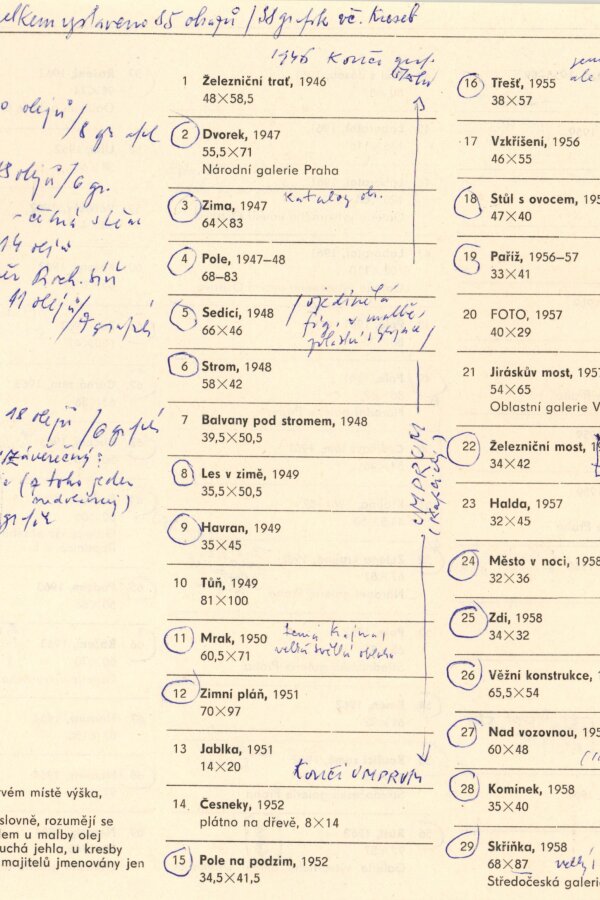 elkem vystaveno 55 obrazů / 38 grafik vč. kreseb
olejů
/8 gr
olejů/6 gr.
14 olejů
11 olejů
18 olejů
závěrečný:
(z toho jeden
1946 končí
1 Železniční trať, 1946
48×58,5
2 Dvorek, 1947
55,5×71
Národní galerie Praha
3 Zima, 1947
katalog ob.
64×83
4 Pole, 1947–48
68–83
5 Sedící, 1948
66×46
(ojedinělá
fig. v malbě,
6 Strom, 1948
58×42
7 Balvany pod stromem, 1948
39,5×50,5
8 Les v zimě, 1949
35,5×50,5
UMPRUM
9 Havran, 1949
35×45
10 Tůň, 1949
81×100
11 Mrak, 1950
60,5×71
temná krajina,
velká světlá obloha
12 Zimní pláň, 1951
70×97
13 Jablka, 1951
14×20
Končí UMPRUM
14 Česneky, 1952
plátno na dřevě, 8×14
15 Pole na podzim, 1952
34,5×41,5
16 Třešť, 1955
38×57
17 Vzkříšení, 1956
46×55
18 Stůl s ovocem, 195
47×40
19 Paříž, 1956–57
33×41
20 FOTO, 1957
40×29
21 Jiráskův most, 1957
54×65
Oblastní galerie V
22 Železniční most,
34×42
23 Halda, 1957
32×45
24 Město v noci, 1958
32×36
25 Zdi, 1958
34×32
26 Věžní konstrukce, 1
65,5×54
27 Nad vozovnou, 195
60×48
28 Komínek, 1958
35×40
29 Skříňka, 1958
68×87
velký,
Středočeská galerie
rvém místě výška,
slovně, rozumějí se
lem u malby olej
uchá jehla, u kresby
majitelů jmenovány jen